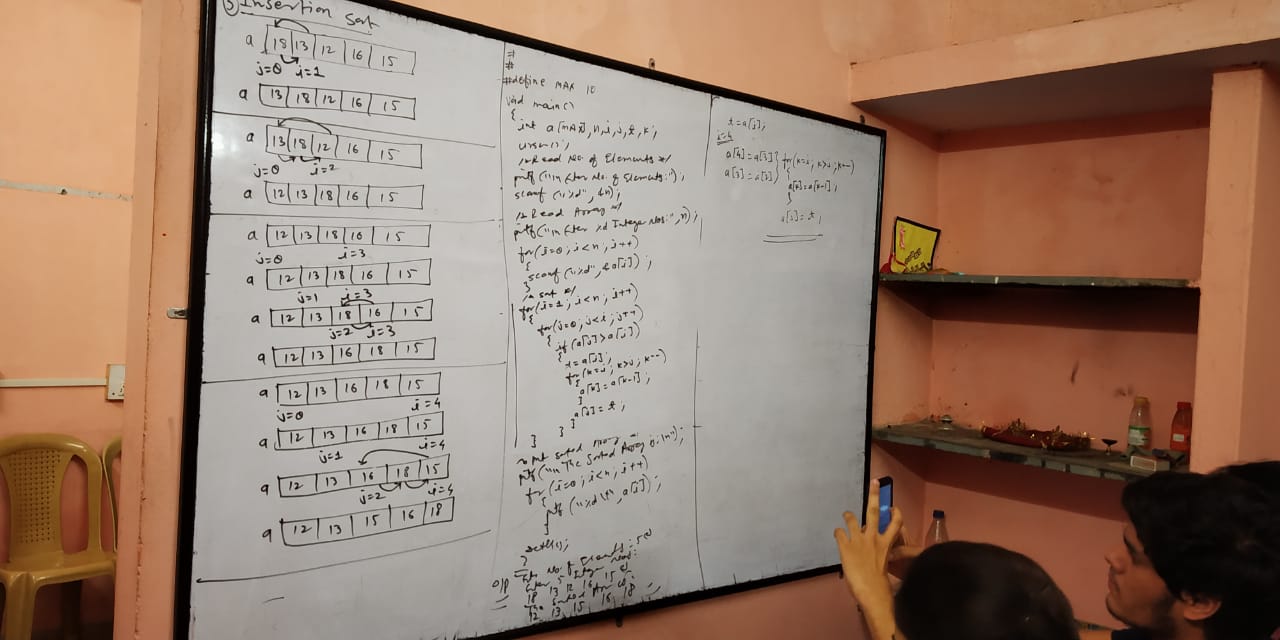 ③ Insertion Sort
a 18 13 12 16 15
j=0 i=1
a 13 18 12 16 15
a 13 18 12 16 15
j=0 i=2
a 12 13 18 16 15
a 12 13 18 16 15
j=0 i=3
a 12 13 18 16 15
j=1 i=3
a 12 13 18 16 15
j=2 i=3
a 12 13 16 18 15
a 12 13 16 18 15
j=0 i=4
a 12 13 16 18 15
j=1 i=4
a 12 13 16 18 15
j=2 i=4
a 12 13 15 16 18
#
#
#define MAX 10
void main()
{
int a[MAX],n,i,j,t,k;
clrscr();
/* Read No. of Elements */
printf("\n Enter No. of Elements:");
scanf("%d",&n);
/* Read Array */
printf("\n Enter %d Integer Nos:",n);
for(i=0;i<n;i++)
{
scanf("%d",&a[i]);
}
/* sort */
for(i=1;i<n;i++)
{
for(j=0;j<i;j++)
{
if(a[j]>a[i])
{
t=a[i];
for(k=i;k>j;k--)
{
a[k]=a[k-1];
}
a[j]=t;
}
}
}
sorted Array
printf("\n The Sorted Array is:\n");
for(i=0;i<n;i++)
{
printf("%d\t",a[i]);
}
getch();
}
O/P Enter No. of Elements: 5
Enter 5 Integer Nos:
18 13 12 16 15
The Sorted Array is:
12 13 15 16 18
t=a[i];
i=4
a[4]=a[3] } for(k=i;k>j;k--)
{
a[3]=a[2] } a[k]=a[k-1];
}
a[j]=t;